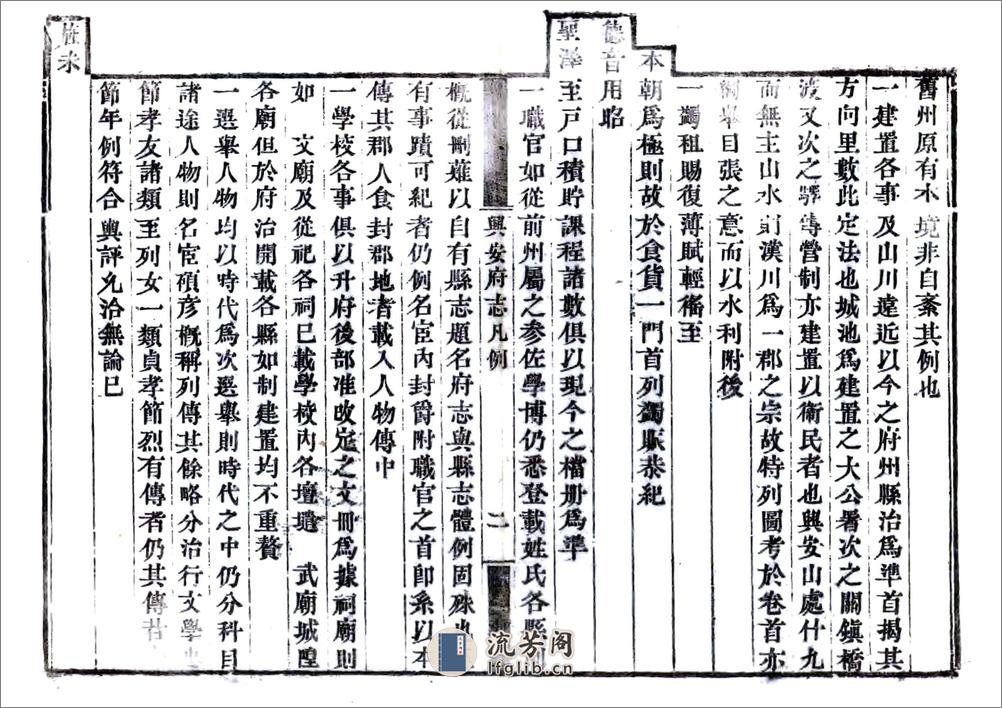 舊州原有水境非自紊其例也
一建置各事及山川遠近以今之府州縣治爲準首揭其
方向里數此定法也城池爲建置之大公署次之關鎮橋
渡又次之驛傳營制亦建置以衛民者也興安山處什九
而無主山水則漢川爲一郡之宗故特列圖考於卷首亦
綱舉目張之意而以水利附後
一蠲租賜復薄賦輕徭至
本朝爲極則故於食貨一門首列蠲賑恭紀
德音用昭
聖澤至戸口積貯課程諸數俱以現今之檔册爲準
一職官如從前州屬之參佐學博仍悉登載姓氏各縣
興安府志凡例
二
概從刪薙以自有縣志題名府志與縣志體例固殊也
有事蹟可紀者仍例名宦内封爵附職官之首即系以本
傳其郡人食封郡地者載入人物傳中
一學校各事俱以升府後部准改定之文冊爲據祠廟則
如 文廟及從祀各祠已載學校内各壇壝 武廟城隍
各廟但於府治開載各縣如制建置均不重贅
一選舉人物均以時代爲次選舉則時代之中仍分科目
諸途人物則名宦碩彦概稱列傳其餘略分治行文學
節孝友諸類至列女一類貞孝節烈有傳者仍其傳
旌未
節年例符合輿評允洽無論已
流芳阁
lfglib.cn